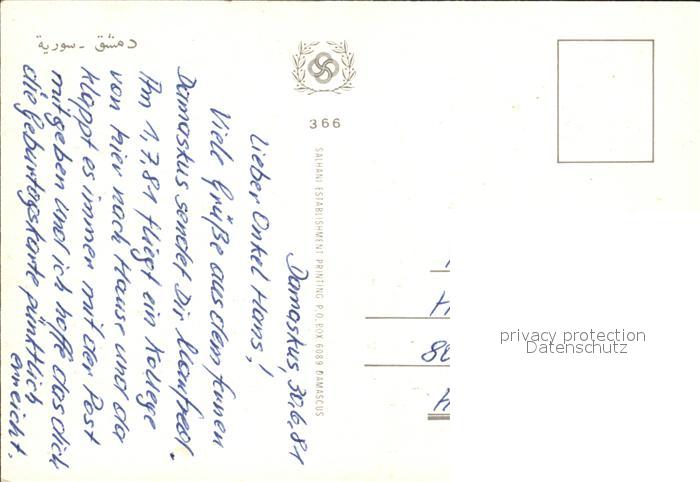 دمشق - سورية
366
SALHANI ESTABLISHMENT PRINTING P.O.BOX 6089 DAMASCUS
Damaskus, 30.6.81
Lieber Onkel Hans!
Viele Grüße aus dem fernen
Damaskus sendet Dir Manfred.
Am 1.7.81 fliegt ein Kollege
von hier nach Hause und da
klappt es immer mit der Post
mitgeben und ich hoffe das dich
die Geburtagskarte pünktlich
erreicht.
H
80
A
privacy protection
Datenschutz